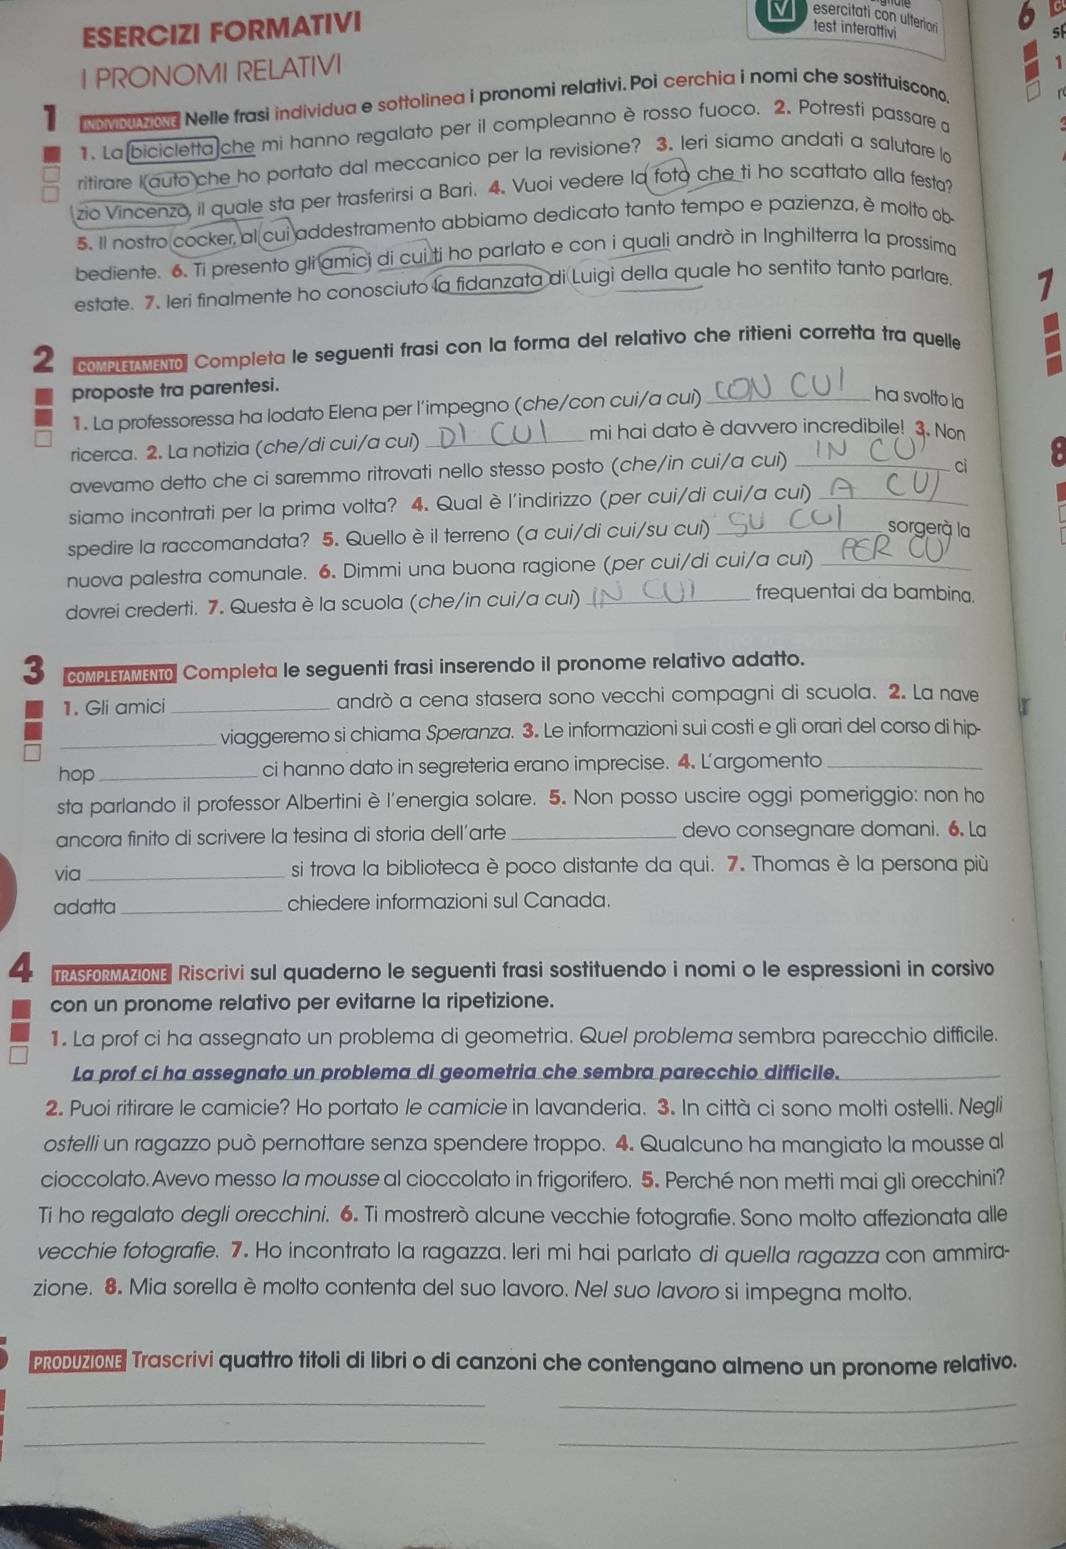 esercitati con ulteriori
test interattivi
6
ESERCIZI FORMATIVI
I PRONOMI RELATIVI
1 INDIVIDUAZIONE Nelle frasi individua e sottolinea i pronomi relativi. Poi cerchia i nomi che sostituiscono.
1. La bicicletta che mi hanno regalato per il compleanno è rosso fuoco. 2. Potresti passare a
ritirare l'auto che ho portato dal meccanico per la revisione? 3. Ieri siamo andati a salutare lo
zio Vincenzo, il quale sta per trasferirsi a Bari. 4. Vuoi vedere la foto che ti ho scattato alla festa?
5. Il nostro cocker, al cui addestramento abbiamo dedicato tanto tempo e pazienza, è molto ob-
bediente. 6. Ti presento gli amici di cui ti ho parlato e con i quali andrò in Inghilterra la prossima
estate. 7. Ieri finalmente ho conosciuto la fidanzata di Luigi della quale ho sentito tanto parlare.
7
2 COMPLETAMENTO Completa le seguenti frasi con la forma del relativo che ritieni corretta tra quelle
proposte tra parentesi.
1. La professoressa ha lodato Elena per l'impegno (che/con cui/a cui) CON CUI ha svolto la
ricerca. 2. La notizia (che/di cui/a cui) DI CUI mi hai dato è davvero incredibile! 3. Non
avevamo detto che ci saremmo ritrovati nello stesso posto (che/in cui/a cui) IN CUI ci
siamo incontrati per la prima volta? 4. Qual è l'indirizzo (per cui/di cui/a cui) A CUI
spedire la raccomandata? 5. Quello è il terreno (a cui/di cui/su cui) SU CUI sorgerà la
nuova palestra comunale. 6. Dimmi una buona ragione (per cui/di cui/a cui) PER CUI
dovrei crederti. 7. Questa è la scuola (che/in cui/a cui) IN CUI frequentai da bambina.
8
3 COMPLETAMENTO Completa le seguenti frasi inserendo il pronome relativo adatto.
1. Gli amici ____ andrò a cena stasera sono vecchi compagni di scuola. 2. La nave
____ viaggeremo si chiama Speranza. 3. Le informazioni sui costi e gli orari del corso di hip-
hop ____ ci hanno dato in segreteria erano imprecise. 4. L'argomento ____
sta parlando il professor Albertini è l'energia solare. 5. Non posso uscire oggi pomeriggio: non ho
ancora finito di scrivere la tesina di storia dell'arte ____ devo consegnare domani. 6. La
via ____ si trova la biblioteca è poco distante da qui. 7. Thomas è la persona più
adatta ____ chiedere informazioni sul Canada.
4 TRASFORMAZIONE Riscrivi sul quaderno le seguenti frasi sostituendo i nomi o le espressioni in corsivo
con un pronome relativo per evitarne la ripetizione.
1. La prof ci ha assegnato un problema di geometria. Quel problema sembra parecchio difficile.
La prof ci ha assegnato un problema di geometria che sembra parecchio difficile.
2. Puoi ritirare le camicie? Ho portato le camicie in lavanderia. 3. In città ci sono molti ostelli. Negli
ostelli un ragazzo può pernottare senza spendere troppo. 4. Qualcuno ha mangiato la mousse al
cioccolato. Avevo messo la mousse al cioccolato in frigorifero. 5. Perché non metti mai gli orecchini?
Ti ho regalato degli orecchini. 6. Ti mostrerò alcune vecchie fotografie. Sono molto affezionata alle
vecchie fotografie. 7. Ho incontrato la ragazza. Ieri mi hai parlato di quella ragazza con ammira-
zione. 8. Mia sorella è molto contenta del suo lavoro. Nel suo lavoro si impegna molto.
PRODUZIONE Trascrivi quattro titoli di libri o di canzoni che contengano almeno un pronome relativo.